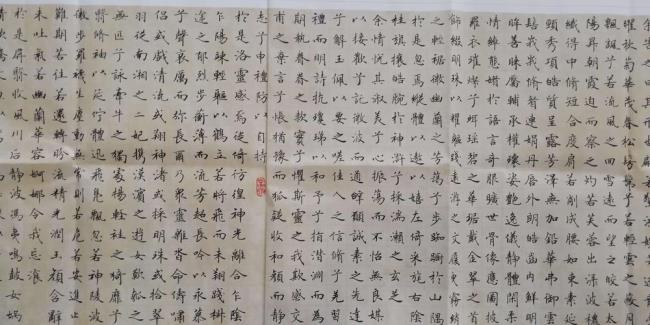 告之曰其形
曜秋菊華茂春松髣髴兮若輕雲之蔽月
飄颻兮若流風之迴雪遠而望之皎若太
陽昇朝霞迫而察之灼若芙蓉出淥波穠
纖得中脩短合度肩若削成腰如束素延
頸秀項皓質呈露芳澤無加鉛華弗御雲
髻峩峩脩眉連娟丹唇外朗皓齒內鮮明
眸善睞靨輔承權瓌姿艷逸儀靜體閑柔
情綽態媚於語言奇服曠世骨像應圖披
羅衣璀璨兮珥瑤碧之華琚戴金翠之首
飾綴明珠以耀軀踐遠游之文履曳霧綃
之輕裾微幽蘭之芳藹兮步踟躕於山隅
於是忽焉縱體以遨以嬉左倚采旄右蔭
桂旗攘皓腕於神滸兮采湍瀨之玄芝
余情悅其淑美兮心振蕩而不怡無良媒
以接歡兮託微波而通辭願誠素之先達
兮解玉佩以要之嗟佳人之信脩兮羌習
禮而明詩抗瓊珶以和予兮指潛淵而為
期執眷眷之款實兮懼斯靈之我欺感交
甫之棄言兮悵猶豫而狐疑收和顏而靜
志兮申禮防以自持
於是洛靈感焉徙倚彷徨神光離合乍陰
乍陽竦輕軀以鶴立若將飛而未翔踐椒
途之郁烈步蘅薄而流芳超長吟以永慕
兮聲哀厲而彌長爾乃眾靈雜沓命儔嘯
侶或戲清流或翔神渚或採明珠或拾翠
羽從南湘之二妃攜漢濱之遊女歎匏瓜之
無匹兮詠牽牛之獨處揚輕袿之猗靡兮
翳脩袖以延佇體迅飛鳧飄忽若神陵波
微步羅襪生塵動無常則若危若安進止
難期若往若還轉眄流精光潤玉顏含辭
未吐氣若幽蘭華容婀娜令我忘湌
於是屏翳收風川后靜波馮夷鳴鼓女媧